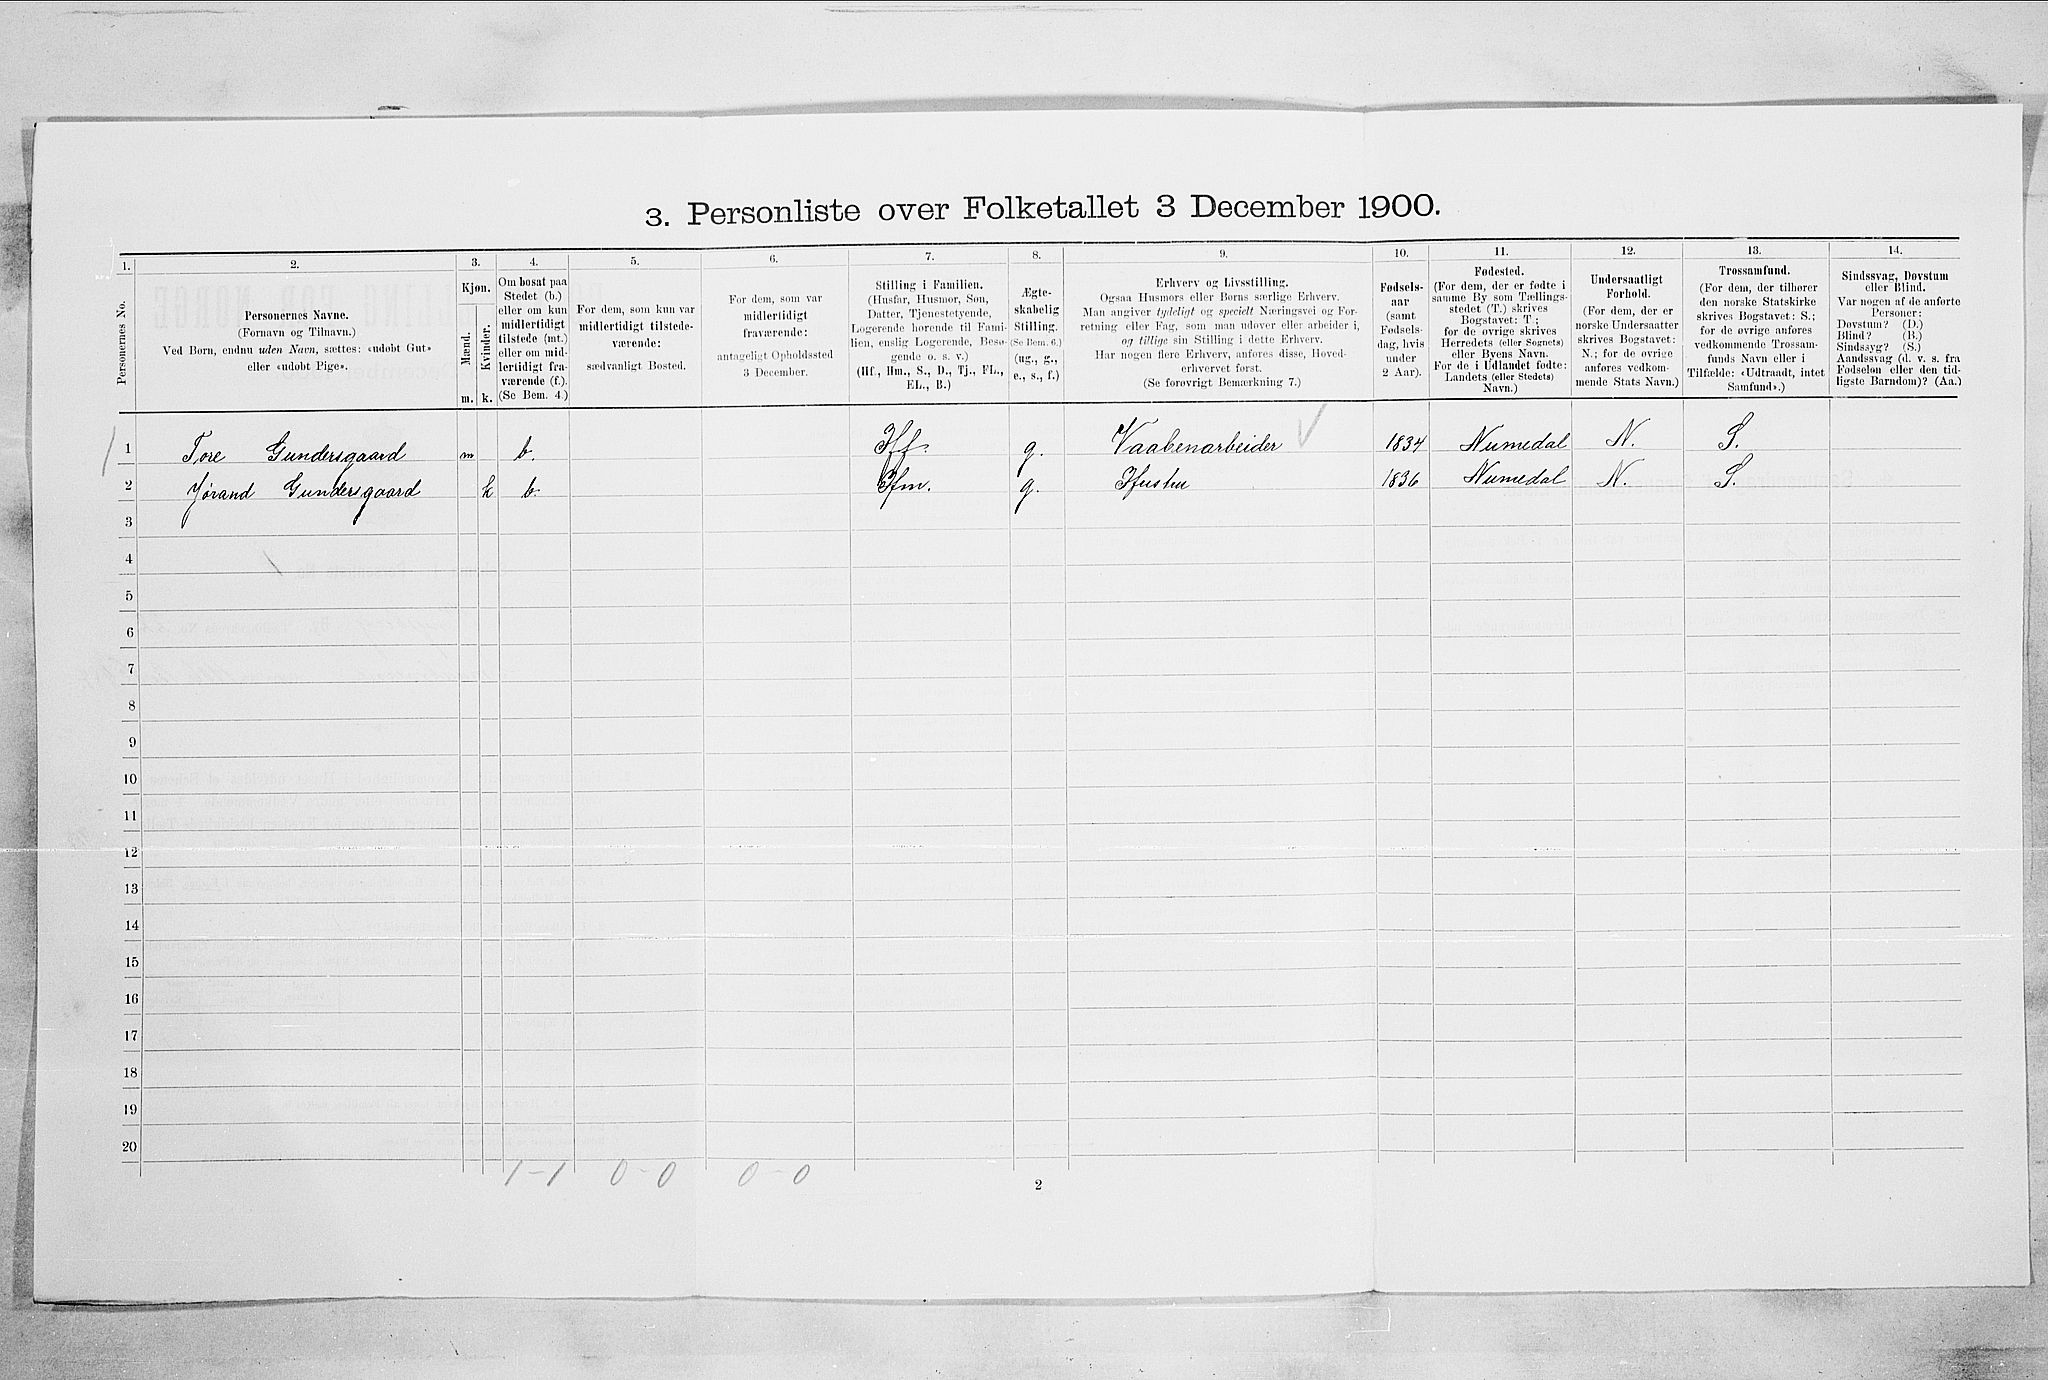 3. Personliste over Folketallet 3 December 1900.
1. 2. 3. 4. 5. 6. 7. 8. 9. 10. 11. 12. 13. 14.
Personernes No.
Personernes Navne.
(Fornavn og Tilnavn.)
Ved Børn, endnu uden Navn, sættes: «udøbt Gut»
eller «udøbt Pige».
Kjøn.
Mænd.
Kvinder.
m. k.
Om bosat paa
Stedet (b.)
eller om kun
midlertidigt
tilstede (mt.)
eller om mid-
lertidigt fra-
værende (f.).
(Se Bem. 4.)
For dem, som kun var
midlertidigt tilstede-
værende:
sædvanligt Bosted.
For dem, som var
midlertidigt
fraværende:
antageligt Opholdssted
3 December.
Stilling i Familien.
(Husfar, Husmor, Søn,
Datter, Tjenestetyende,
Logerende hørende til Fami-
lien, enslig Logerende, Besø-
gende o. s. v.)
(Hf., Hm., S., D., Tj., FL.,
EL., B.)
Ægte-
skabelig
Stilling.
(Se Bem. 6.)
(ug., g.,
e., s., f.)
Erhverv og Livsstilling.
Ogsaa Husmors eller Børns særlige Erhverv.
Man angiver tydeligt og specielt Næringsvei og For-
retning eller Fag, som man udøver eller arbeider i,
og tillige sin Stilling i dette Erhverv.
Har nogen flere Erhverv, anføres disse, Hoved-
erhvervet først.
(Se forøvrigt Bemærkning 7.)
Fødsels-
aar
(samt
Fødsels-
dag, hvis
under
2 Aar).
Fødested.
(For dem, der er fødte i
samme By som Tællings-
stedet (T.) skrives
Bogstavet: T.;
for de øvrige skrives
Herredets (eller Sognets)
eller Byens Navn.
For de i Udlandet fødte:
Landets (eller Stedets)
Navn.)
Undersaatligt
Forhold.
(For dem, der er
norske Undersaatter
skrives Bogstavet:
N.; for de øvrige
anføres vedkom-
mende Stats Navn.)
Trossamfund.
(For dem, der tilhører
den norske Statskirke
skrives Bogstavet: S.;
for de øvrige anføres
vedkommende Trossam-
funds Navn eller i
Tilfælde: «Udtraadt, intet
Samfund».)
Sindssvag, Døvstum
eller Blind.
Var nogen af de anførte
Personer:
Døvstum? (D.)
Blind? (B.)
Sindssyg? (S.)
Aandssvag (d. v. s. fra
Fødselen eller den tid-
ligste Barndom)? (Aa.)
1 Tore Gundersgaard m b. Hf. g. Vaabenarbeider 1834 Numedal N. S.
2 Jørand Gundersgaard k b. Hm. g. Hustru 1836 Numedal N. S.
3
4
5
6
7
8
9
10
11
12
13
14
15
16
17
18
19
20
1-1 0-0 0-0
2